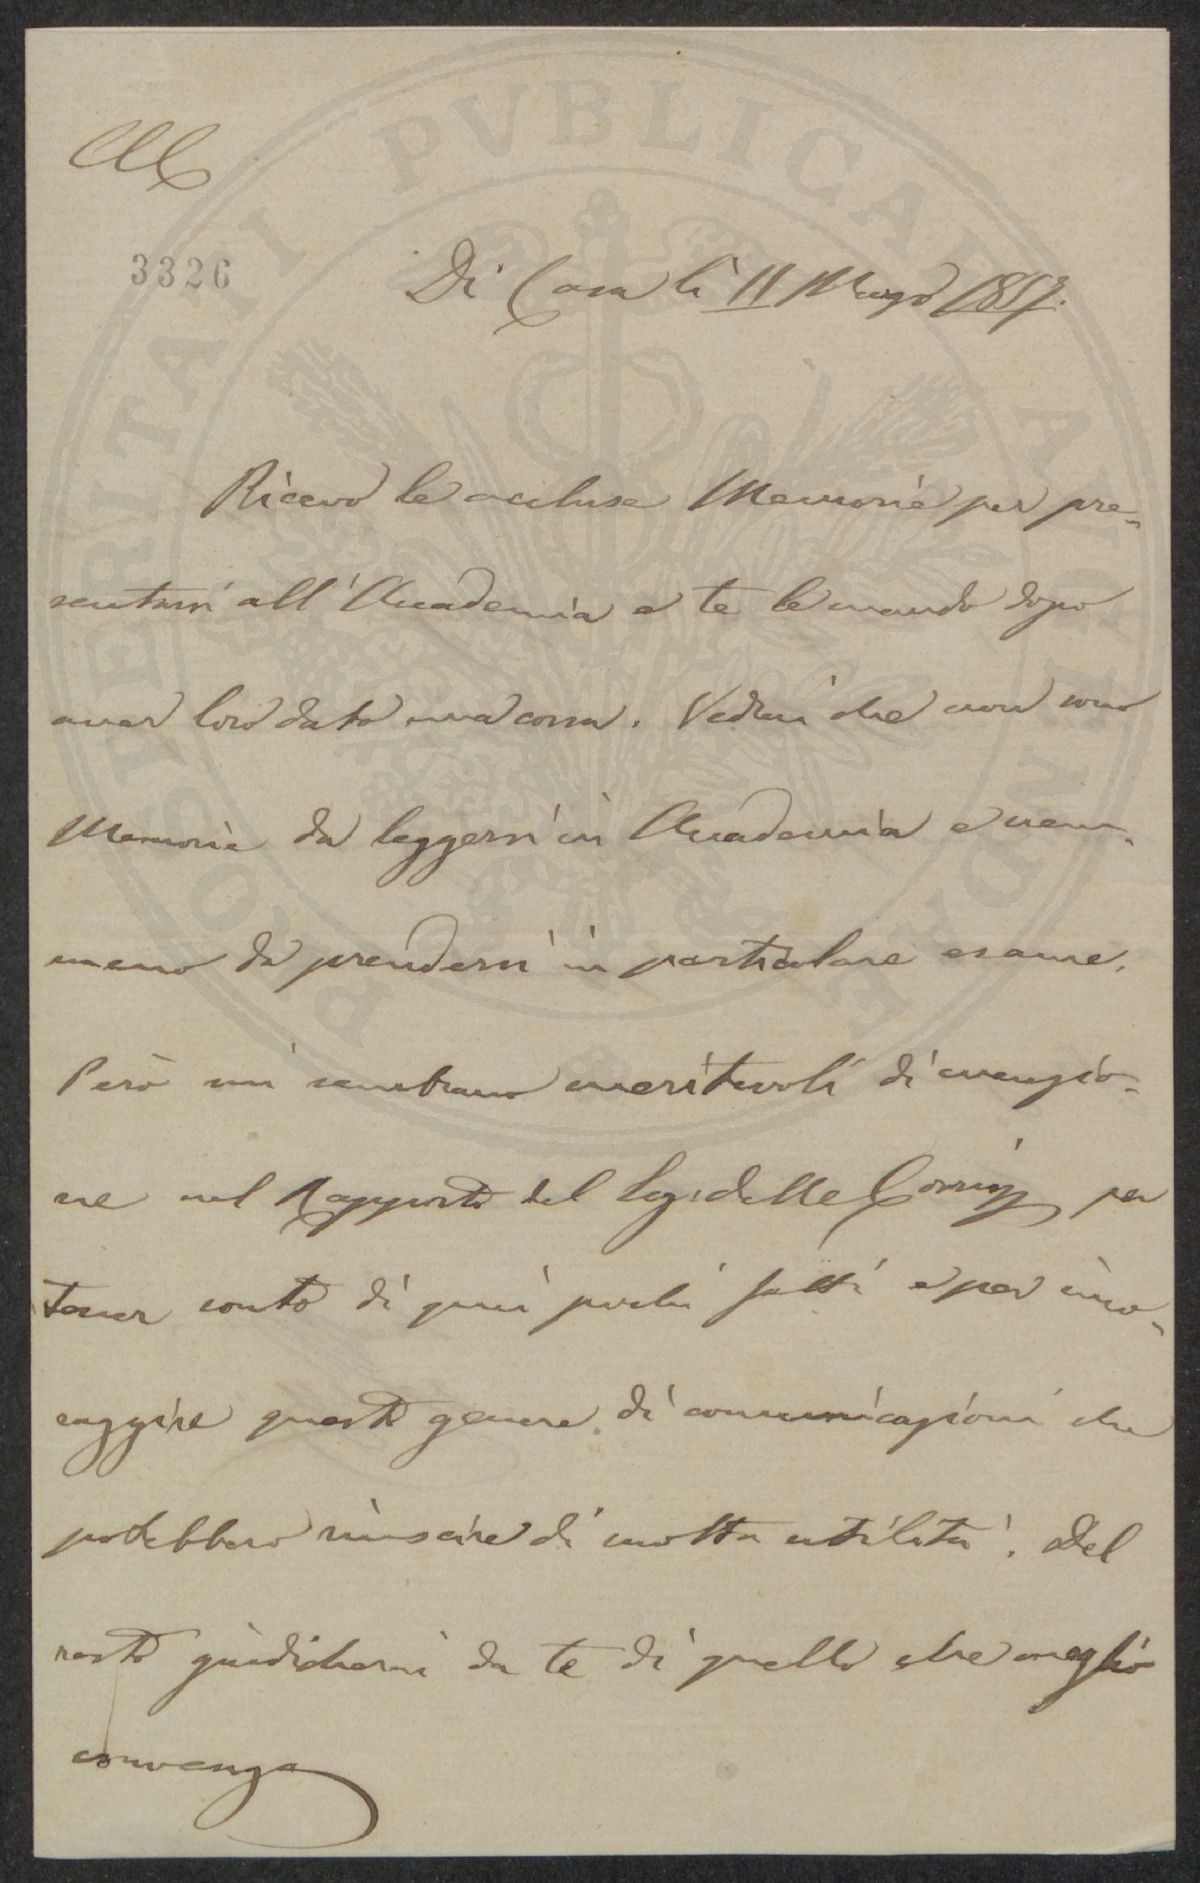 PROSPERITATI PVBLICAE AVGENDAE
3326
Di Casa li 11 Maggio 1857.
Ricevo le accluse Memorie per pre-
sentarsi all'Accademia e te le mando dopo
aver loro dato una corsa. Vedrai che non sono
Memorie da leggersi in Accademia e nem-
meno da prendersi in particolare esame.
Però mi sembrano meritevoli di menzio-
ne nel Rapporto del Seg. delle Corrisp per
tener conto di quei pochi fatti e per inco-
raggire questo genere di comunicazioni che
potrebbero riuscire di molta utilità. Del
resto giudicherai da te di quello che meglio
convenga